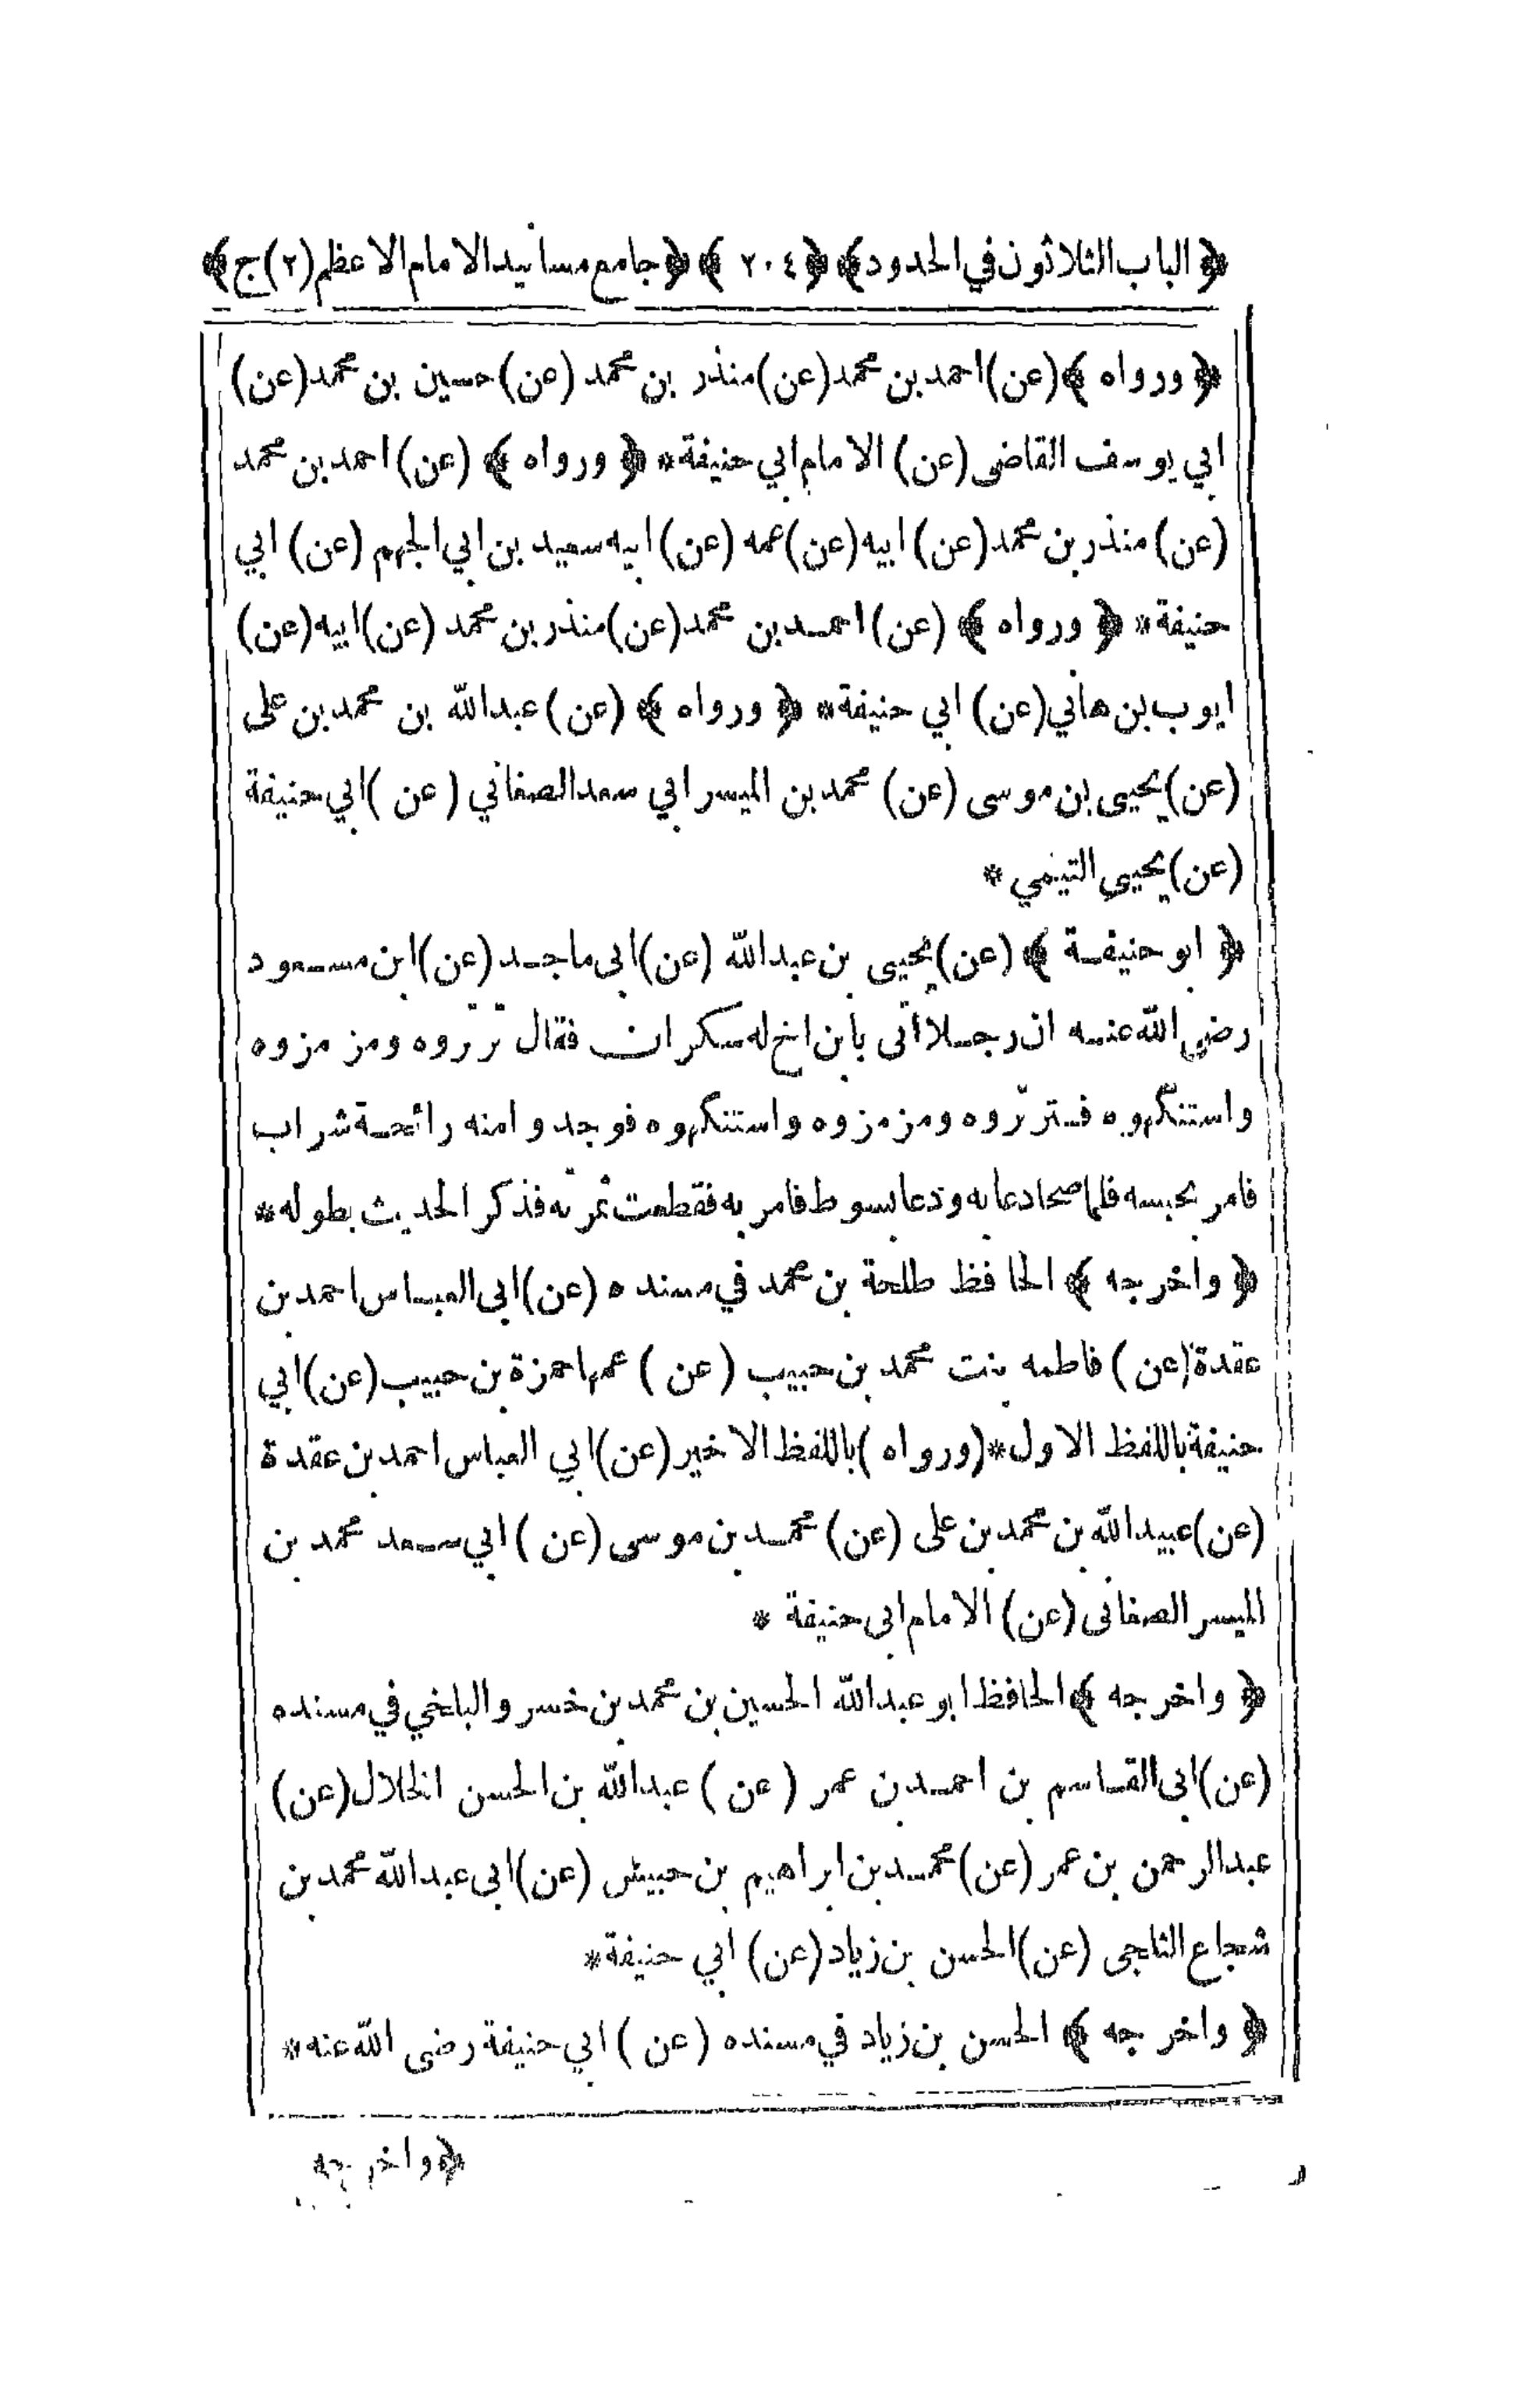 ﴿ الباب الثلاثون في الحدود ﴾ ﴿ ٢٠٤ ﴾ ﴿ جامع مسانيد الامام الاعظم (٢) ج ﴾
﴿ ورواه ﴾ (عن) احمد بن محمد (عن) منذر بن محمد (عن) حسين بن محمد (عن)
ابي يوسف القاضى (عن) الامام ابي حنيفة * ﴿ ورواه ﴾ (عن) احمد بن محمد
(عن) منذر بن محمد (عن) ابيه (عن) عمه (عن) ابيه سعيد بن ابي الجهم (عن) ابي
حنيفة * ﴿ ورواه ﴾ (عن) احمد بن محمد (عن) منذر بن محمد (عن) ابيه (عن)
ايوب بن هاني (عن) ابي حنيفة * ﴿ ورواه ﴾ (عن) عبد الله بن محمد بن على
(عن) يحيى بن موسى (عن) محمد بن الميسر ابي سعد الصغاني (عن) ابي حنيفة
(عن) يحيى التيمي *
﴿ ابو حنيفة ﴾ (عن) يحيى بن عبد الله (عن) ابى ماجد (عن) ابن مسعود
رضى الله عنه ان رجلا اتى بابن اخ له سكران فقال ترتروه ومز مزوه
واستنكهوه فترتروه ومزمزوه واستنكهوه فوجدوا منه رائحة شراب
فامر بحبسه فلما صحا دعا به ودعا بسوط فامر به فقطعت ثمرته فذكر الحديث بطوله *
﴿ واخرجه ﴾ الحافظ طلحة بن محمد في مسنده (عن) ابى العباس احمد بن
عقدة (عن) فاطمه بنت محمد بن حبيب (عن) عمها حمزة بن حبيب (عن) ابي
حنيفة باللفظ الاول * (ورواه) باللفظ الاخير (عن) ابي العباس احمد بن عقدة
(عن) عبيد الله بن محمد بن على (عن) محمد بن موسى (عن) ابي سعد محمد بن
الميسر الصغانى (عن) الامام ابى حنيفة *
﴿ واخرجه ﴾ الحافظ ابو عبد الله الحسين بن محمد بن خسرو البلخي في مسنده
(عن) ابى القاسم بن احمد بن عمر (عن) عبد الله بن الحسن الخلال (عن)
عبد الرحمن بن عمر (عن) محمد بن ابراهيم بن حبيش (عن) ابى عبد الله محمد بن
شجاع الثلجى (عن) الحسن بن زياد (عن) ابي حنيفة *
﴿ واخرجه ﴾ الحسن بن زياد في مسنده (عن) ابي حنيفة رضى الله عنه *
﴿ واخرجه